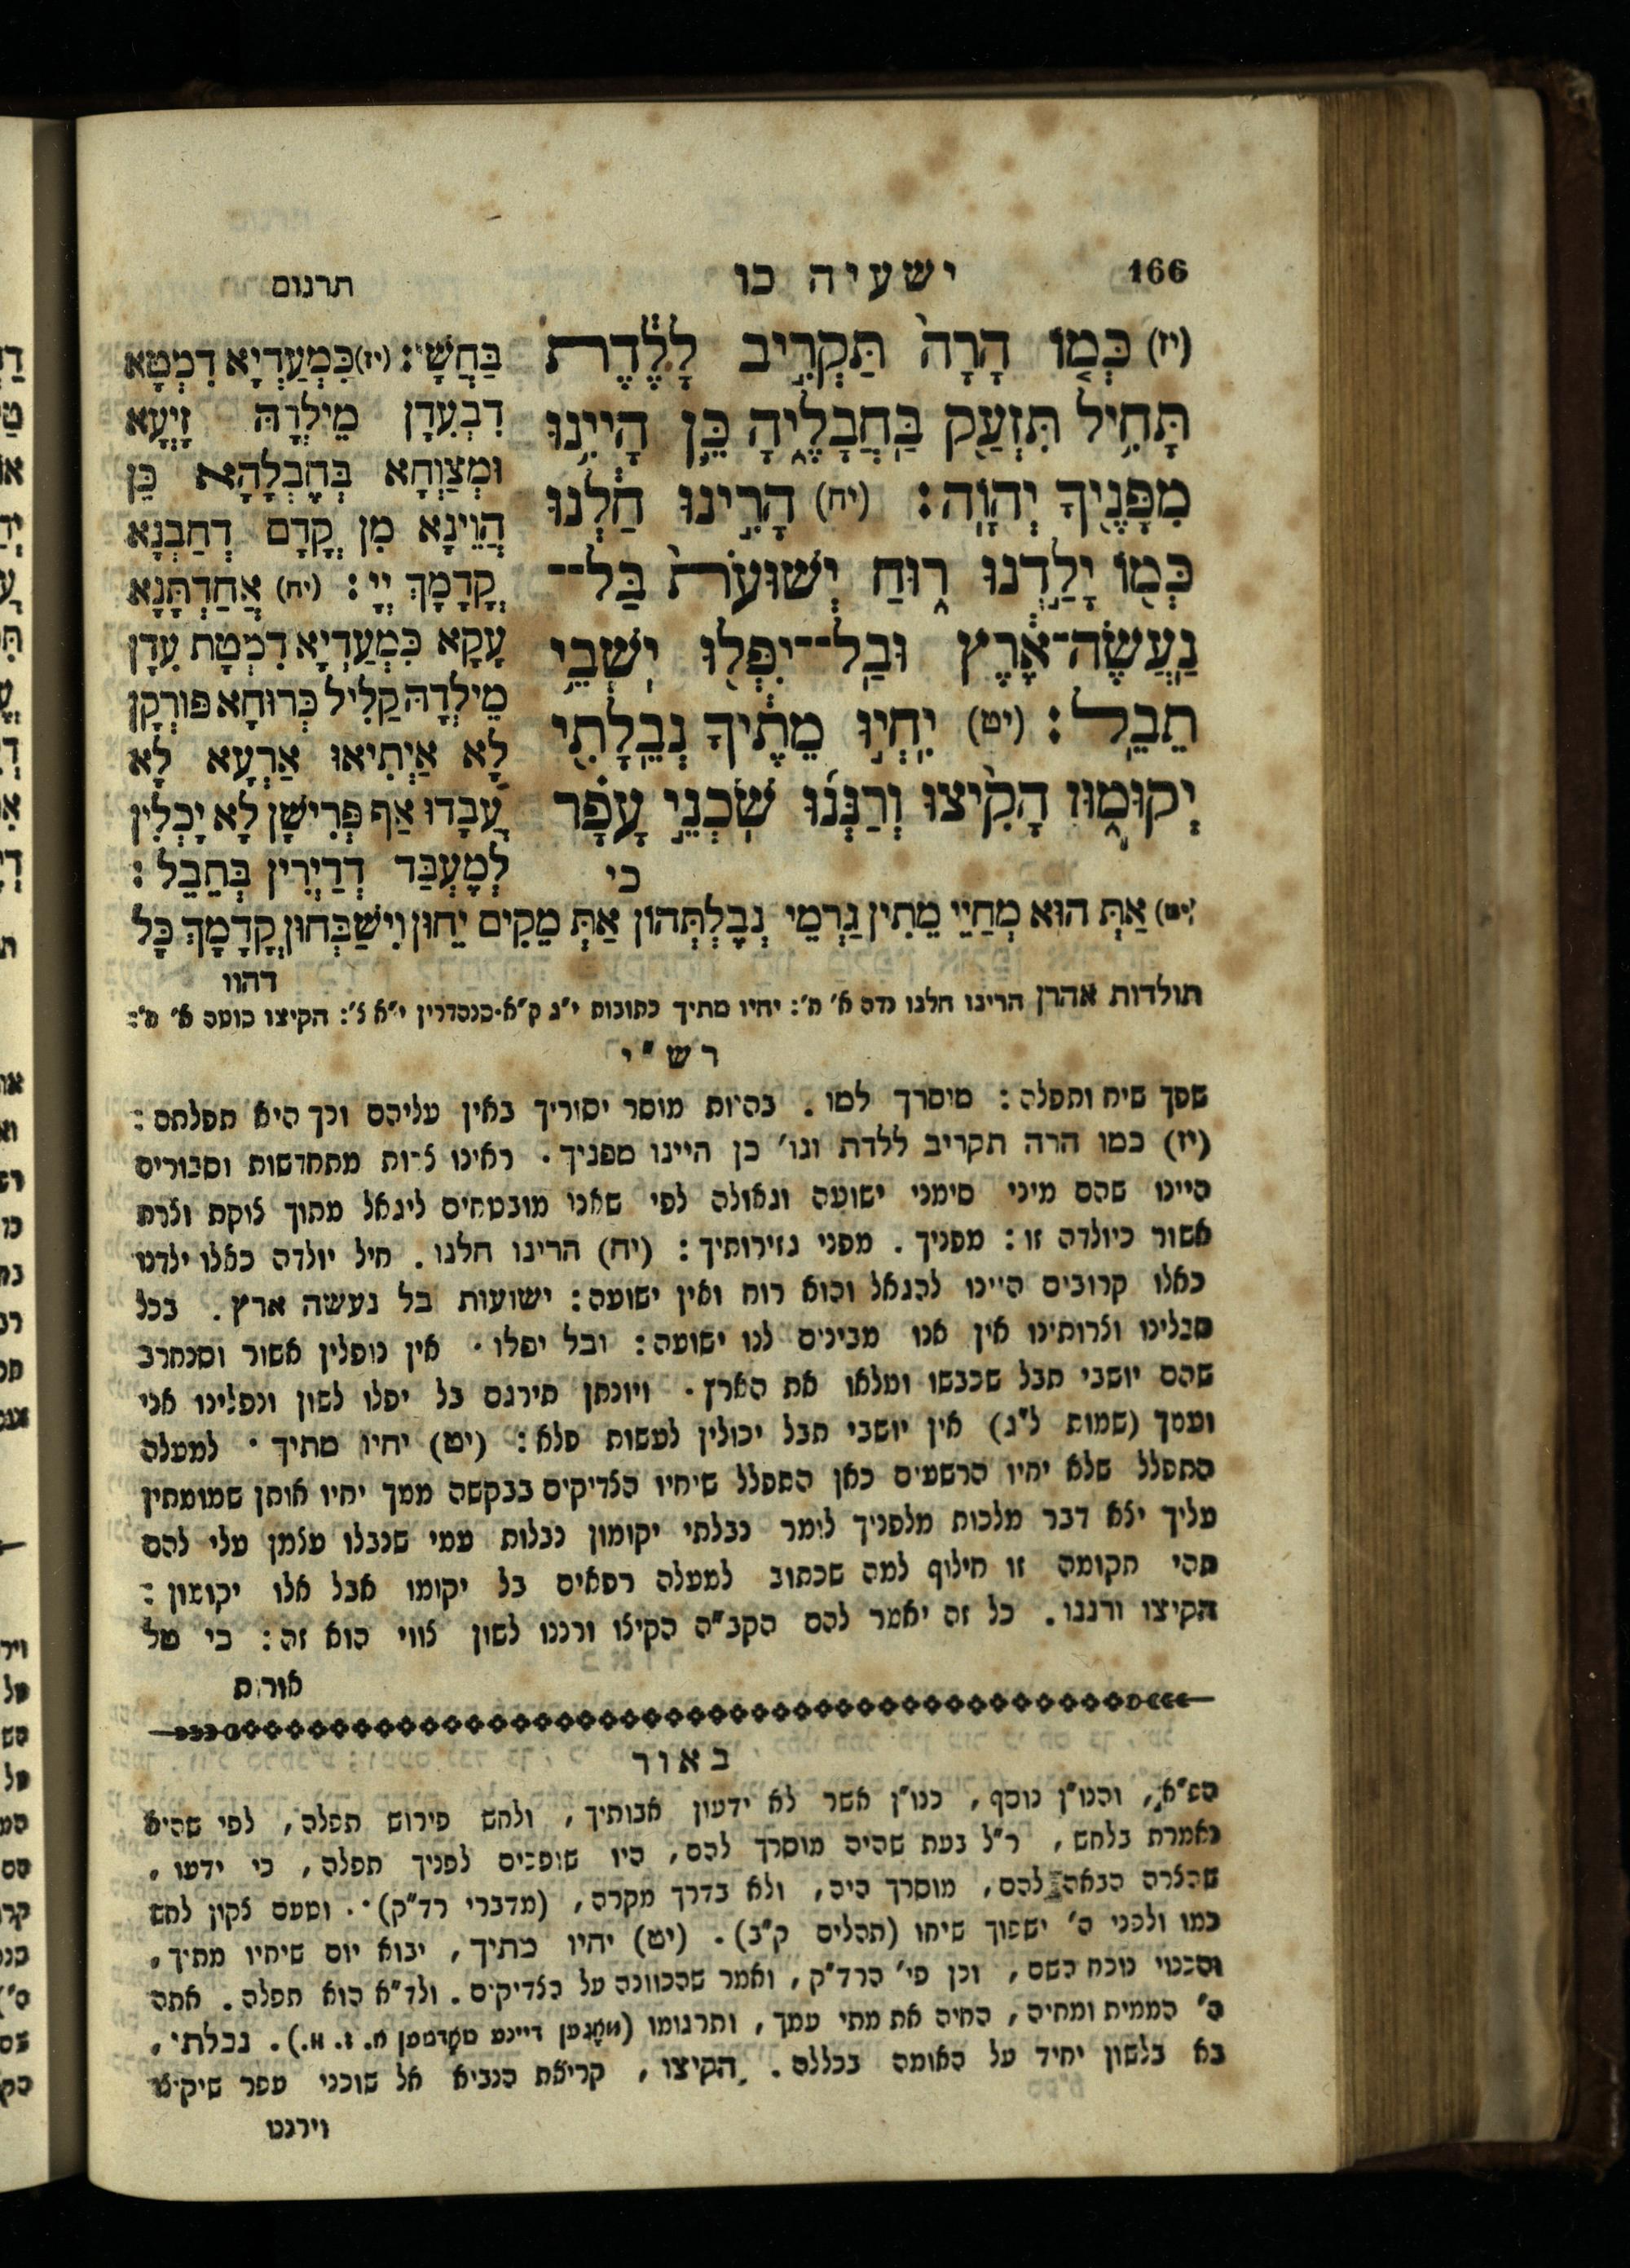 166
ישעיה כו
תרגום
(יז) כְּמ֤וֹ הָרָה֙ תַּקְרִ֣יב לָלֶ֔דֶת
תָּחִ֥יל תִּזְעַ֖ק בַּחֲבָלֶ֑יהָ כֵּ֛ן הָיִ֥ינוּ
מִפָּנֶ֖יךָ יְהוָֹֽה׃ (יח) הָרִ֣ינוּ חַ֔לְנוּ
כְּמ֖וֹ יָלַ֣דְנוּ ר֑וּחַ יְשׁוּעֹת֙ בַּל־
נַעֲשֶׂה־אָ֔רֶץ וּבַל־יִפְּל֖וּ יֹשְׁבֵ֥י
תֵבֵֽל׃ (יט) יִֽחְי֣וּ מֵתֶ֔יךָ נְבֵלָתִ֖י
יְקוּמ֑וּן הָקִ֨יצוּ וְרַנְּנ֜וּ שֹׁכְנֵ֣י עָפָ֗ר
כי
בַּחֲשַׁי׃ (יז) כִּמְעַדְיָא דִמְטָא
דִבְעִדָן מֵילְדָהּ זָיְעָא
וּמְצַוְחָא בְּחֶבְלָהָא כֵּן
הֲוֵינָא מִן קֳדָם דְחַבְנָא
קֳדָמָךְ יְיָ׃ (יח) אֲחַדְתָּנָא
עָקָא כִּמְעַדְיָא דִמְטָת עִדָן
מֵילְדָהּ קַלִיל כְּרוּחָא פּוּרְקָן
לָא אַיְתִיאוּ אַרְעָא לָא
עֲבָדוּ אַף פְּרִישָׁן לָא יָכְלִין
לְמֶעְבַּד דְדַיְרִין בְּתֵבֵל׃
(יט) אַתְּ הוּא מְחַיֵי מֵתִין גַרְמֵי נְבֶלְתְּהוֹן אַתְּ מֵקִים יֵחוּן וִישַׁבְּחוּן קֳדָמָךְ כָּל
דהוו
תולדות אהרן הרינו חלנו נדה א׳ ח׳: יחיו מתיך כתובות י״ג ק״א. סנהדרין י״א ז׳: הקיצו סוטה א׳ ח״:
רש״י
שפך שיח ותפלה: מוסרך למו. בהיות מוסר יסוריך באין עליהם וכך היא תפלתם:
(יז) כמו הרה תקריב ללדת וגו׳ כן היינו מפניך. ראינו צרות מתחדשות וסבורים
היינו שהם מיני סימני ישועה וגאולה לפי שאנו מובטחים ליגאל מתוך צוקה וצרת
אשור כיולדה זו: מפניך. מפני גזירותיך: (יח) הרינו חלנו. חיל יולדה כאלו ילדנו
כאלו קרובים היינו להגאל והוא רוח ואין ישועה: ישועות בל נעשה ארץ. בכל
סבלינו וצרותינו אין אנו מבינים לנו ישועה: ובל יפלו. אין נופלין אשור וסנחרב
שהם יושבי תבל שכבשו ומלאו את הארץ. ויונתן תירגם בל יפלו לשון ונפלינו אני
ועמך (שמות ל״ג) אין יושבי תבל יכולין לעשות פלא: (יט) יחיו מתיך. למעלה
התפלל שלא יחיו הרשעים כאן התפלל שיחיו הצדיקים בבקשה ממך יחיו אותן שמומתין
עליך יצא דבר מלכות מלפניך לומר נבלתי יקומון נבלות עמי שנבלו עצמן עלי להם
תהי תקומה זו חילוף למה שכתוב למעלה רפאים בל יקומו אבל אלו יקומון:
הקיצו ורננו. כל זה יאמר להם הקב״ה הקיצו ורננו לשון צווי הוא זה: כי טל
אורות
באור
הפ״א, והנו״ן נוסף, כנו״ן אשר לא ידעון אבותיך, ולחש פירוש תפלה, לפי שהיא
נאמרת בלחש, ר״ל בעת שהיה מוסרך להם, היו שופכים לפניך תפלה, כי ידעו,
שהצרה הבאה להם, מוסרך היה, ולא בדרך מקרה, (מדברי רד״ק). וטעם צקון לחש
כמו ולפני ה׳ ישפוך שיחו (תהלים ק״ב). (יט) יחיו מתיך, יבוא יום שיחיו מתיך,
והכנוי נוכח השם, וכן פי׳ הרד״ק, ואמר שהכוונה על הצדיקים. ולד״א הוא תפלה. אתה
ה׳ הממית ומחיה, החיה את מתי עמך, ותרגומו (מאָגען דיינע טאָדטען א. ז. וו.). נבלתי,
בא בלשון יחיד על האומה בכללה. הקיצו, קריאת הנביא אל שוכני עפר שיקיצו
וירננו